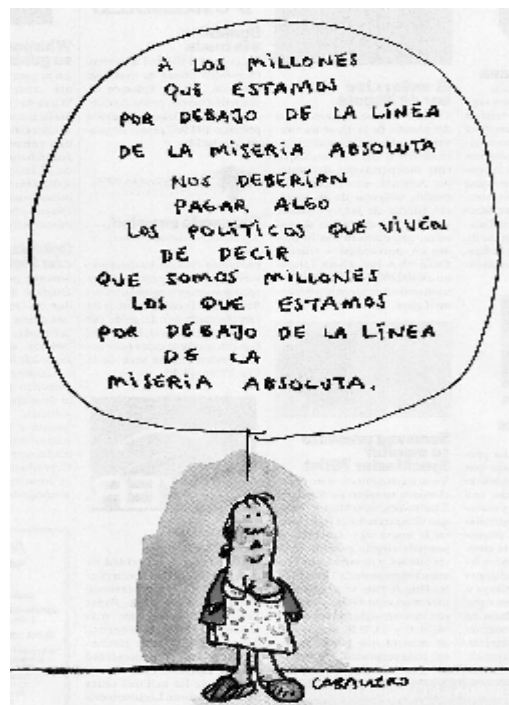 A LOS MILLONES
QUE ESTAMOS
POR DEBAJO DE LA LÍNEA
DE LA MISERIA ABSOLUTA
NOS DEBERÍAN
PAGAR ALGO
LOS POLÍTICOS QUE VIVEN
DE DECIR
QUE SOMOS MILLONES
LOS QUE ESTAMOS
POR DEBAJO DE LA LÍNEA
DE LA
MISERIA ABSOLUTA.
CABALLERO